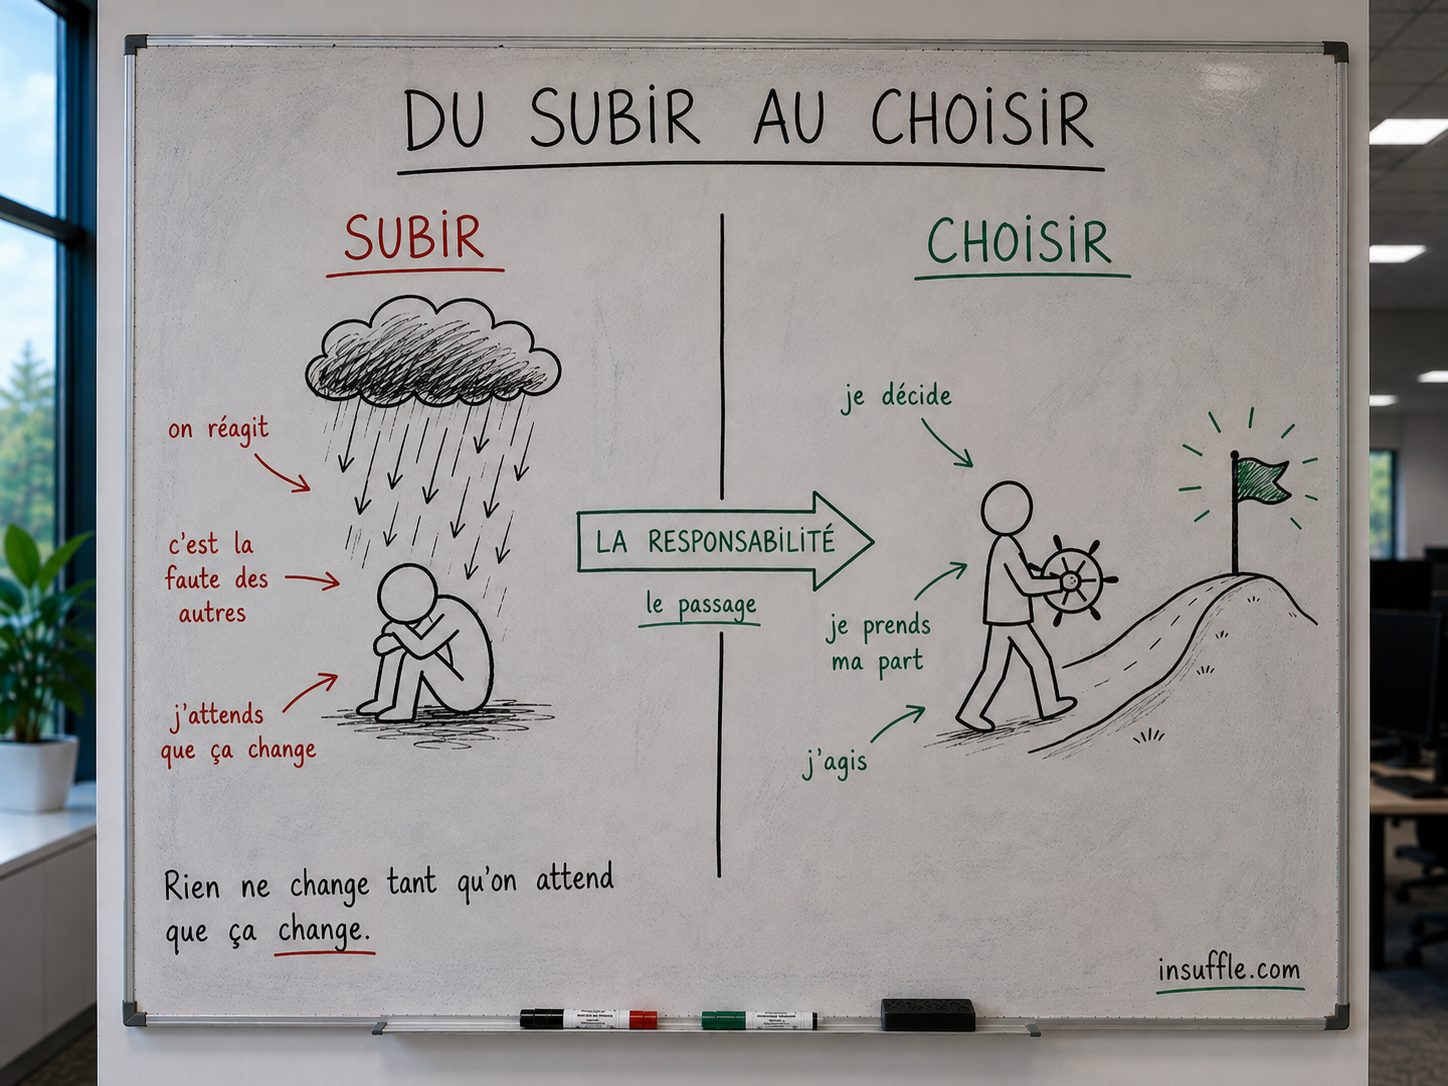 DU SUBIR AU CHOISIR
SUBIR
on réagit
c'est la
faute des
autres
j'attends
que ça change
LA RESPONSABILITÉ
le passage
CHOISIR
je décide
je prends
ma part
j'agis
Rien ne change tant qu'on attend
que ça change.
insuffle.com